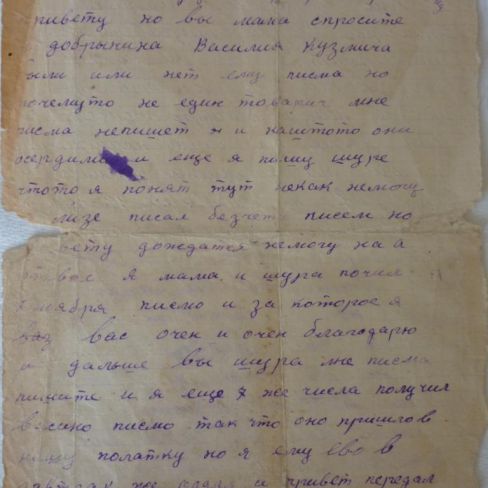 привету но вы мама спросите
добрынина Василия Кузмича
или нет ему писма но
почемуто не един товарищ мне
писма непишет и наштото они
и еще я пошу шуре
чтото я понят тут некак немогу
Лизе писал без чета писем но
дождатся немогу на а
я мама и шура почил
ноября писмо и за которое я
вас очен и очен благодарю
и дальше вы шура мне писма
пишите и я еще 7 же числа получил
васино писмо так что оно пришло в
нашу полатку но я ему ево в
и привет передал